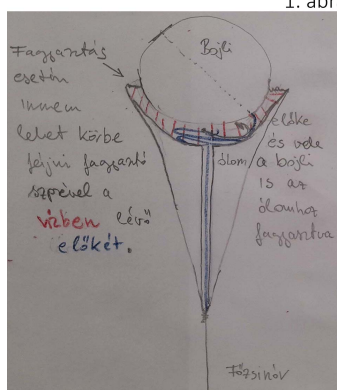 1. ábr
Fagyasztás
esetén
innen
lehet körbe
fújni fagyasztó
szprével a
vízben lévő
előkét.
Bojli
ólom
előke
és vele
a bojli
is az
ólomhoz
fagyasztva
Főzsinór